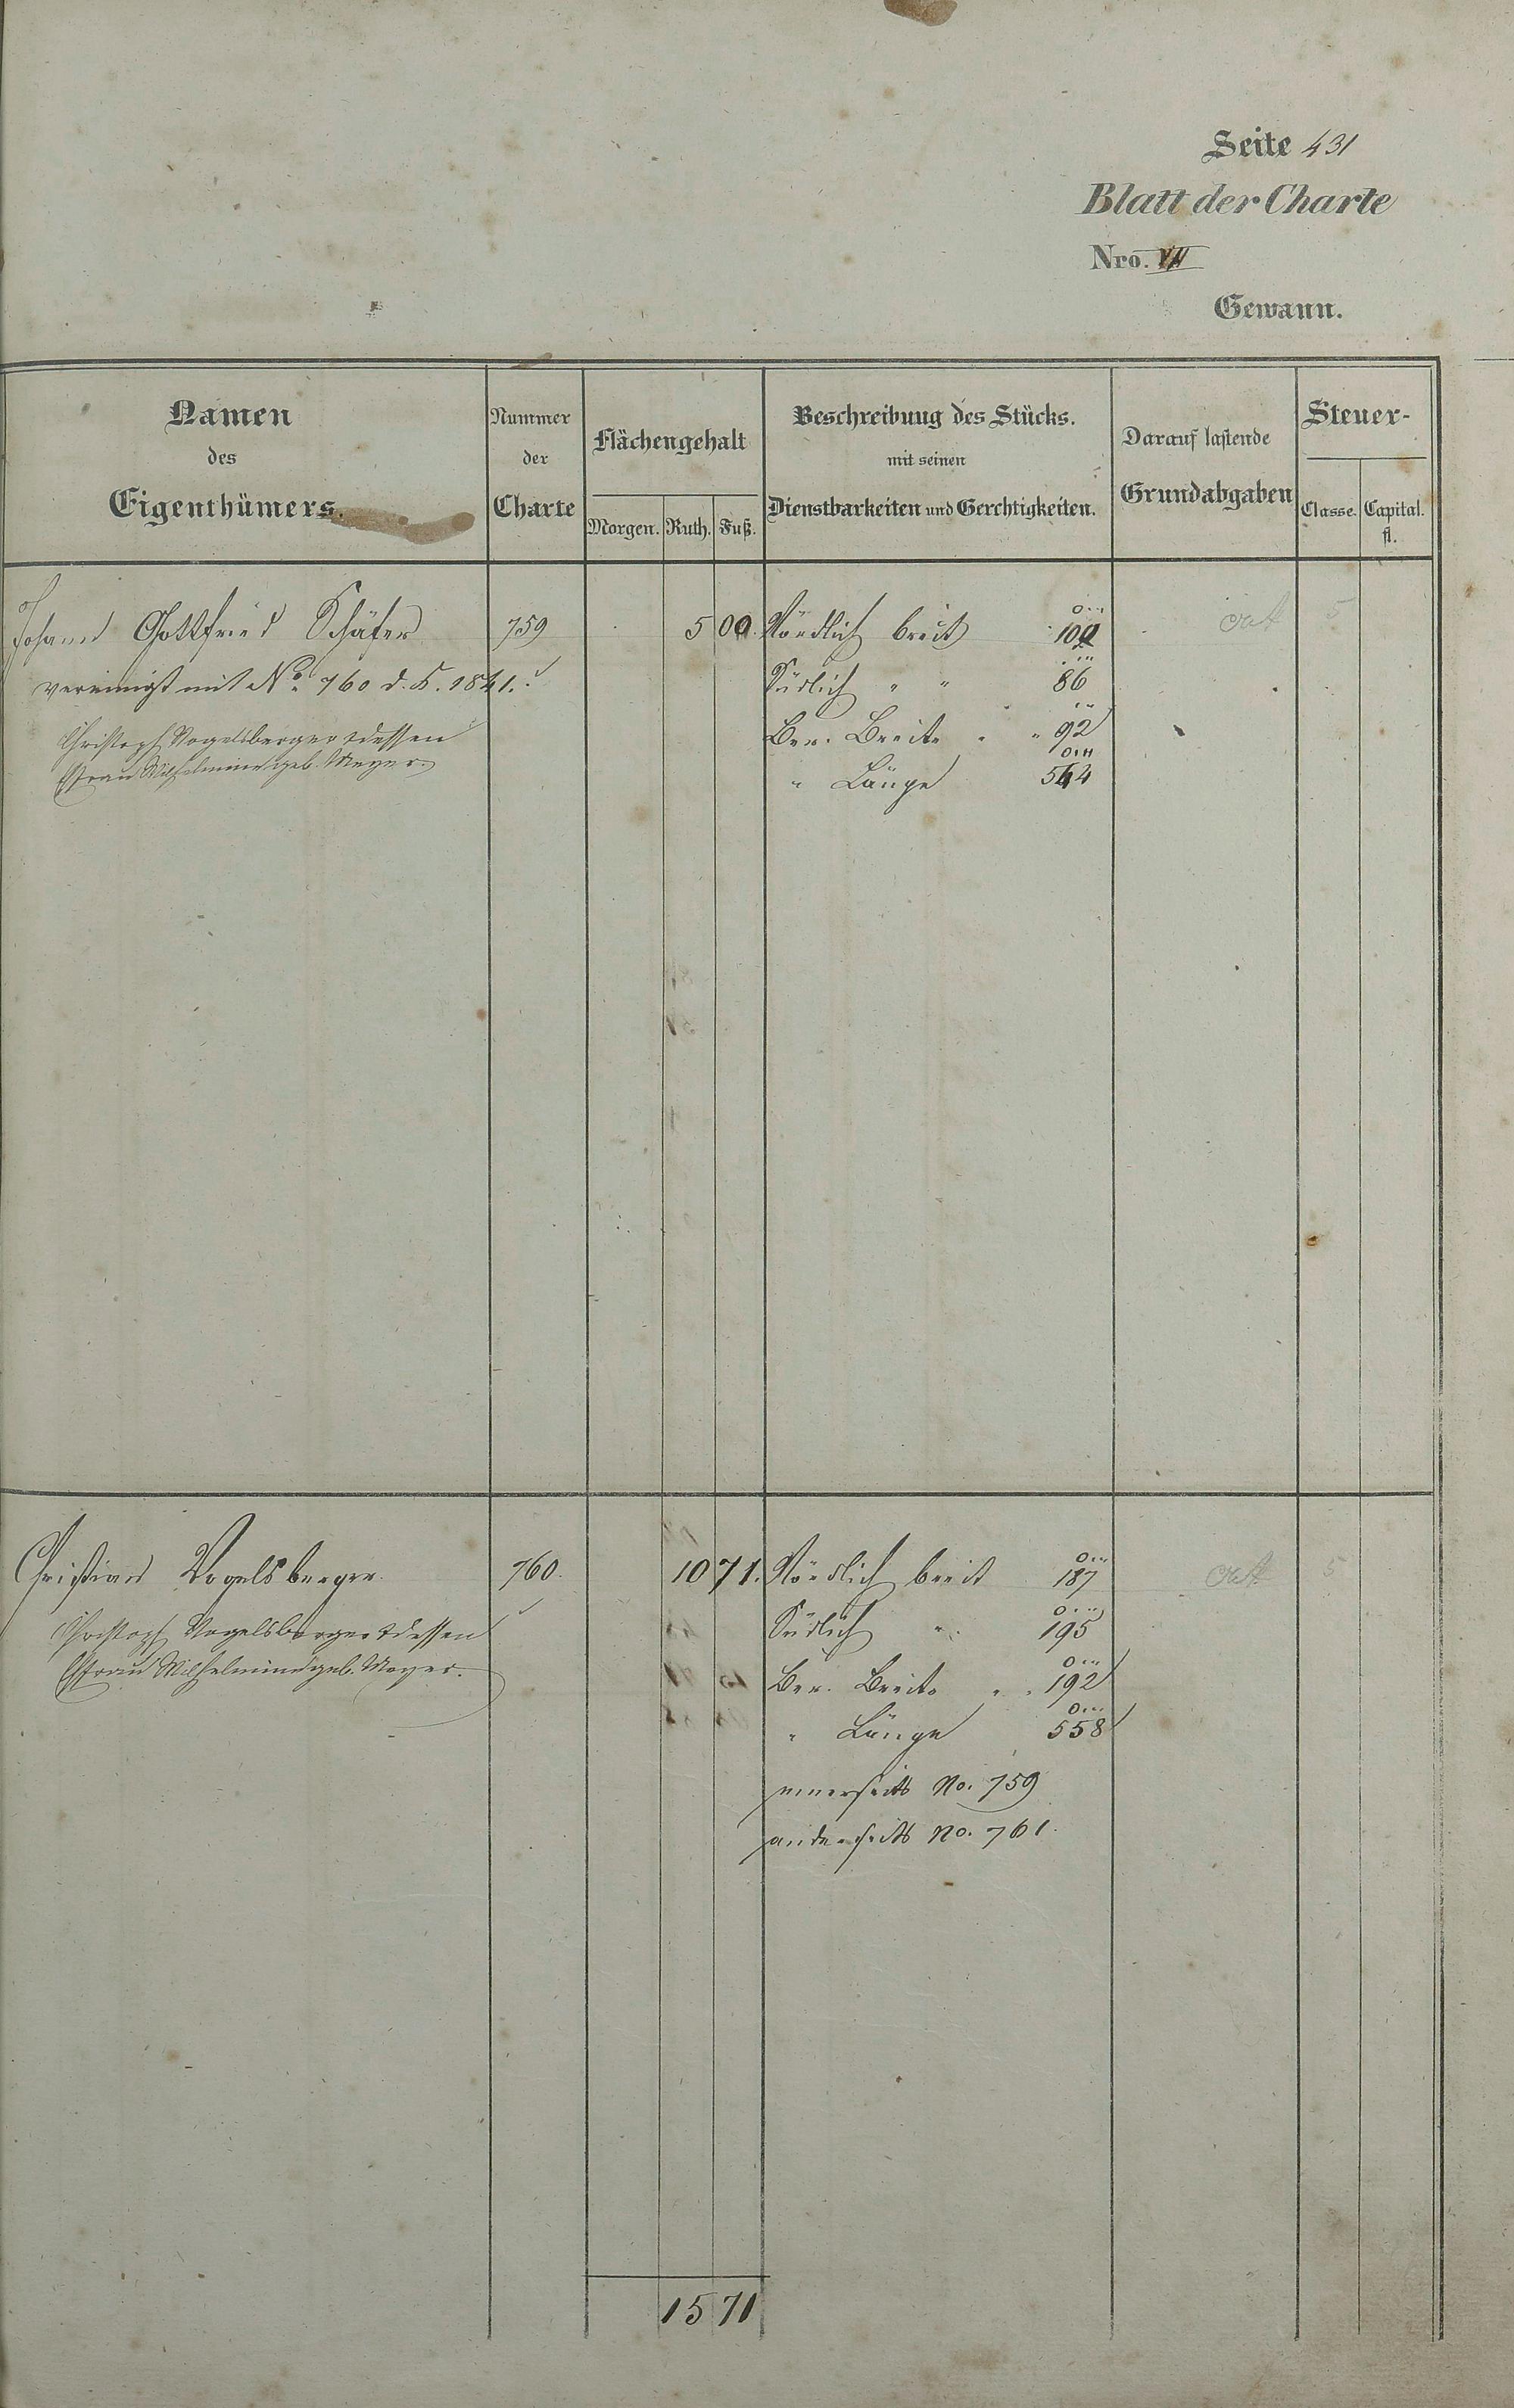 Seite 431
Blatt der Charte
Nro. VII
Gewann.
Namen des Eigenthümers.
Nummer der Charte
Flächengehalt
Morgen. Ruth. Fuß.
Beschreibung des Stücks.
mit seinen
Dienstbarkeiten und Gerechtigkeiten.
Darauf lastende
Grundabgaben
Steuer-
Classe. Capital.
fl.
Johann Gottfried Schäfer 759 5 00 Nördlich breit 100
vereinigt mit No. 760 d. K. 1841. Südlich " " 86
Christoph Vogelsberger & dessen Ber. Breite " " 92
Ehefrau Wilhelmine geb. Meyer. " Länge 544
5
Christian Vogelsberger. 760. 10 71. Nördlich breit 187
5
Christoph Vogelsberger & dessen Südlich " 195
Ehefrau Wilhelmine geb. Meyer. Ber. Breite " " 192
" Länge 558
einerseits No. 759
anderseits No. 761.
15 71